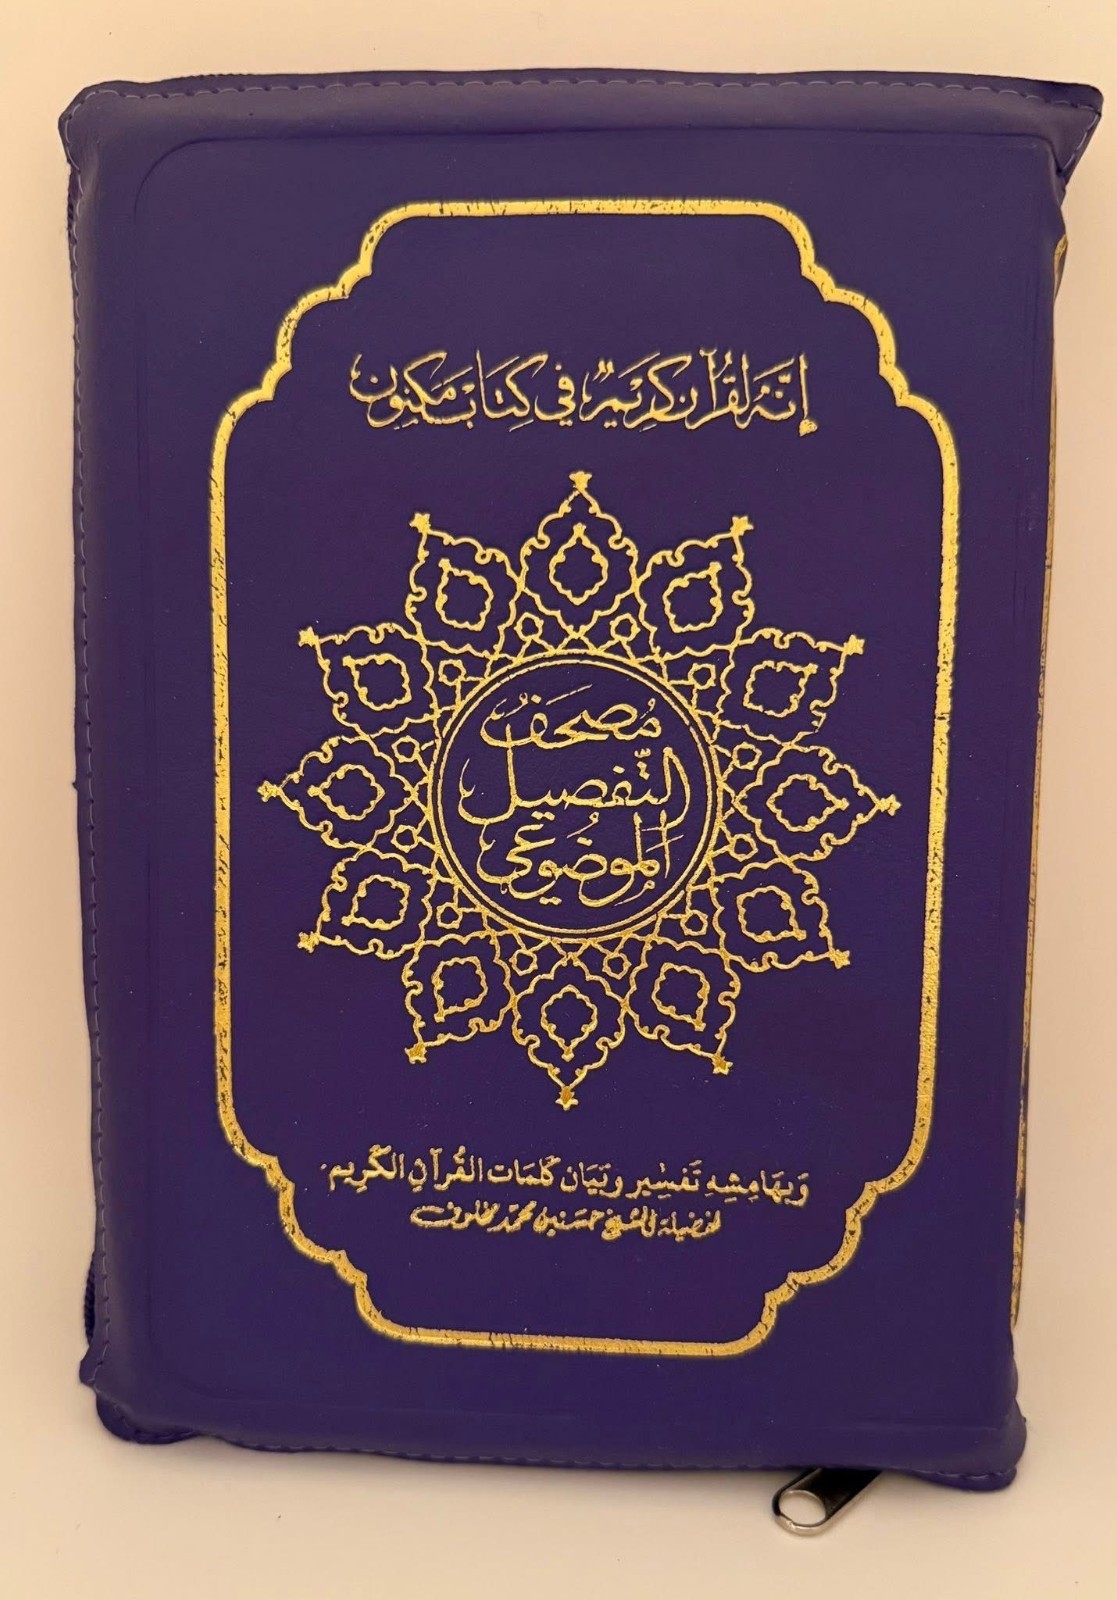 إِنَّهُ لَقُرْآنٌ كَرِيمٌ فِي كِتَابٍ مَكْنُونٍ
مُصْحَفُ
التَّفْصِيلِ
المَوْضُوعِي
وَبِهَامِشِهِ تَفْسِيْر وَبَيَان كَلِمَات القُرآنِ الكَرِيم
لفضيلة الشيخ حسنين محمد مخلوف